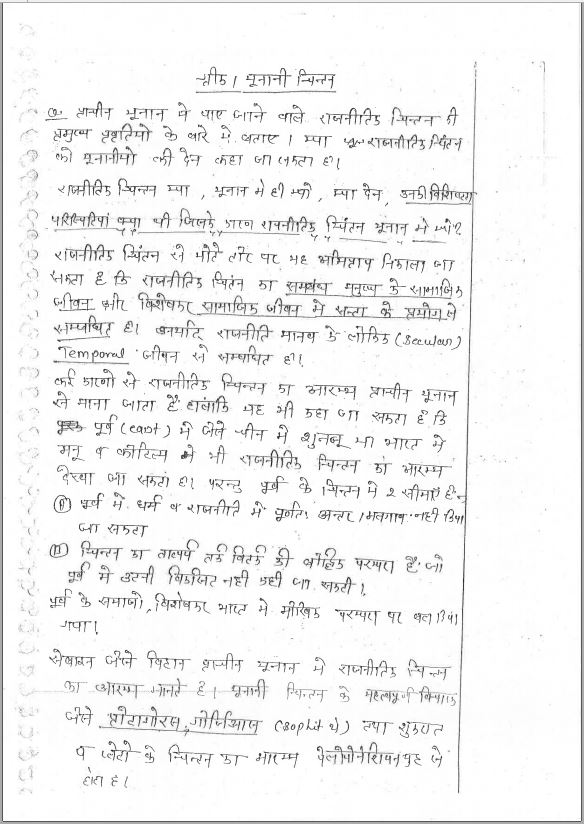 ग्रीक / यूनानी चिन्तन
Q. प्राचीन यूनान मे पाए जाने वाले राजनीतिक चिन्तन की
प्रमुख प्रवृतियो के बारे मे बताए । क्या राजनीतिक चिंतन
को यूनानीयो की देन कहा जा सकता है।
राजनीतिक चिन्तन क्या , यूनान मे ही क्यो , क्या देन , उनकी विशिष्टता
परिस्थितियां क्या थी जिनके कारण राजनीतिक चिंतन यूनान मे क्यो?
राजनीतिक चिंतन से मोटे तौर पर यह अभिप्राय निकाला जा
सकता है कि राजनीतिक चिंतन का सम्बंध मनुष्य के सामाजिक
जीवन और विशेषकर सामाजिक जीवन मे सत्ता के प्रयोग से
सम्बंधित है। अर्थात् राजनीति मानव के लौकिक (Secular)
Temporal जीवन से सम्बंधित है।
कई कारणो से राजनीतिक चिन्तन का आरम्भ प्राचीन यूनान
से माना जाता है. हालांकि यह भी कहा जा सकता है कि
पूर्व (east) मे जैसे चीन मे या भारत मे
मनू व कौटिल्य मे भी राजनीतिक चिन्तन का आरम्भ
देखा जा सकता है। परन्तु पूर्व के चिन्तन मे 2 सीमाएं है-
पूर्व मे धर्म व राजनीति मे पूर्णतः अन्तर / अलगाव नही किया
जा सकता
चिन्तन का तात्पर्य तर्क वितर्क की बौद्धिक परम्परा है. जो
पूर्व मे उतनी विकसित नही कही जा सकती।
पूर्व के समाजो, विशेषकर भारत मे मौखिक परम्परा पर बल दिया
गया।
सेबाइन जैसे विद्वान प्राचीन यूनान मे राजनीतिक चिन्तन
का आरम्भ मानते है। यूनानी चिन्तन के महत्वपूर्ण विचारक
जैसे प्रोटागोरस, गोर्जियास (Sophist थे) तथा सुकरात
व प्लेटो के चिन्तन का आरम्भ पेलोपोनेशियन युद्ध से
होता है।